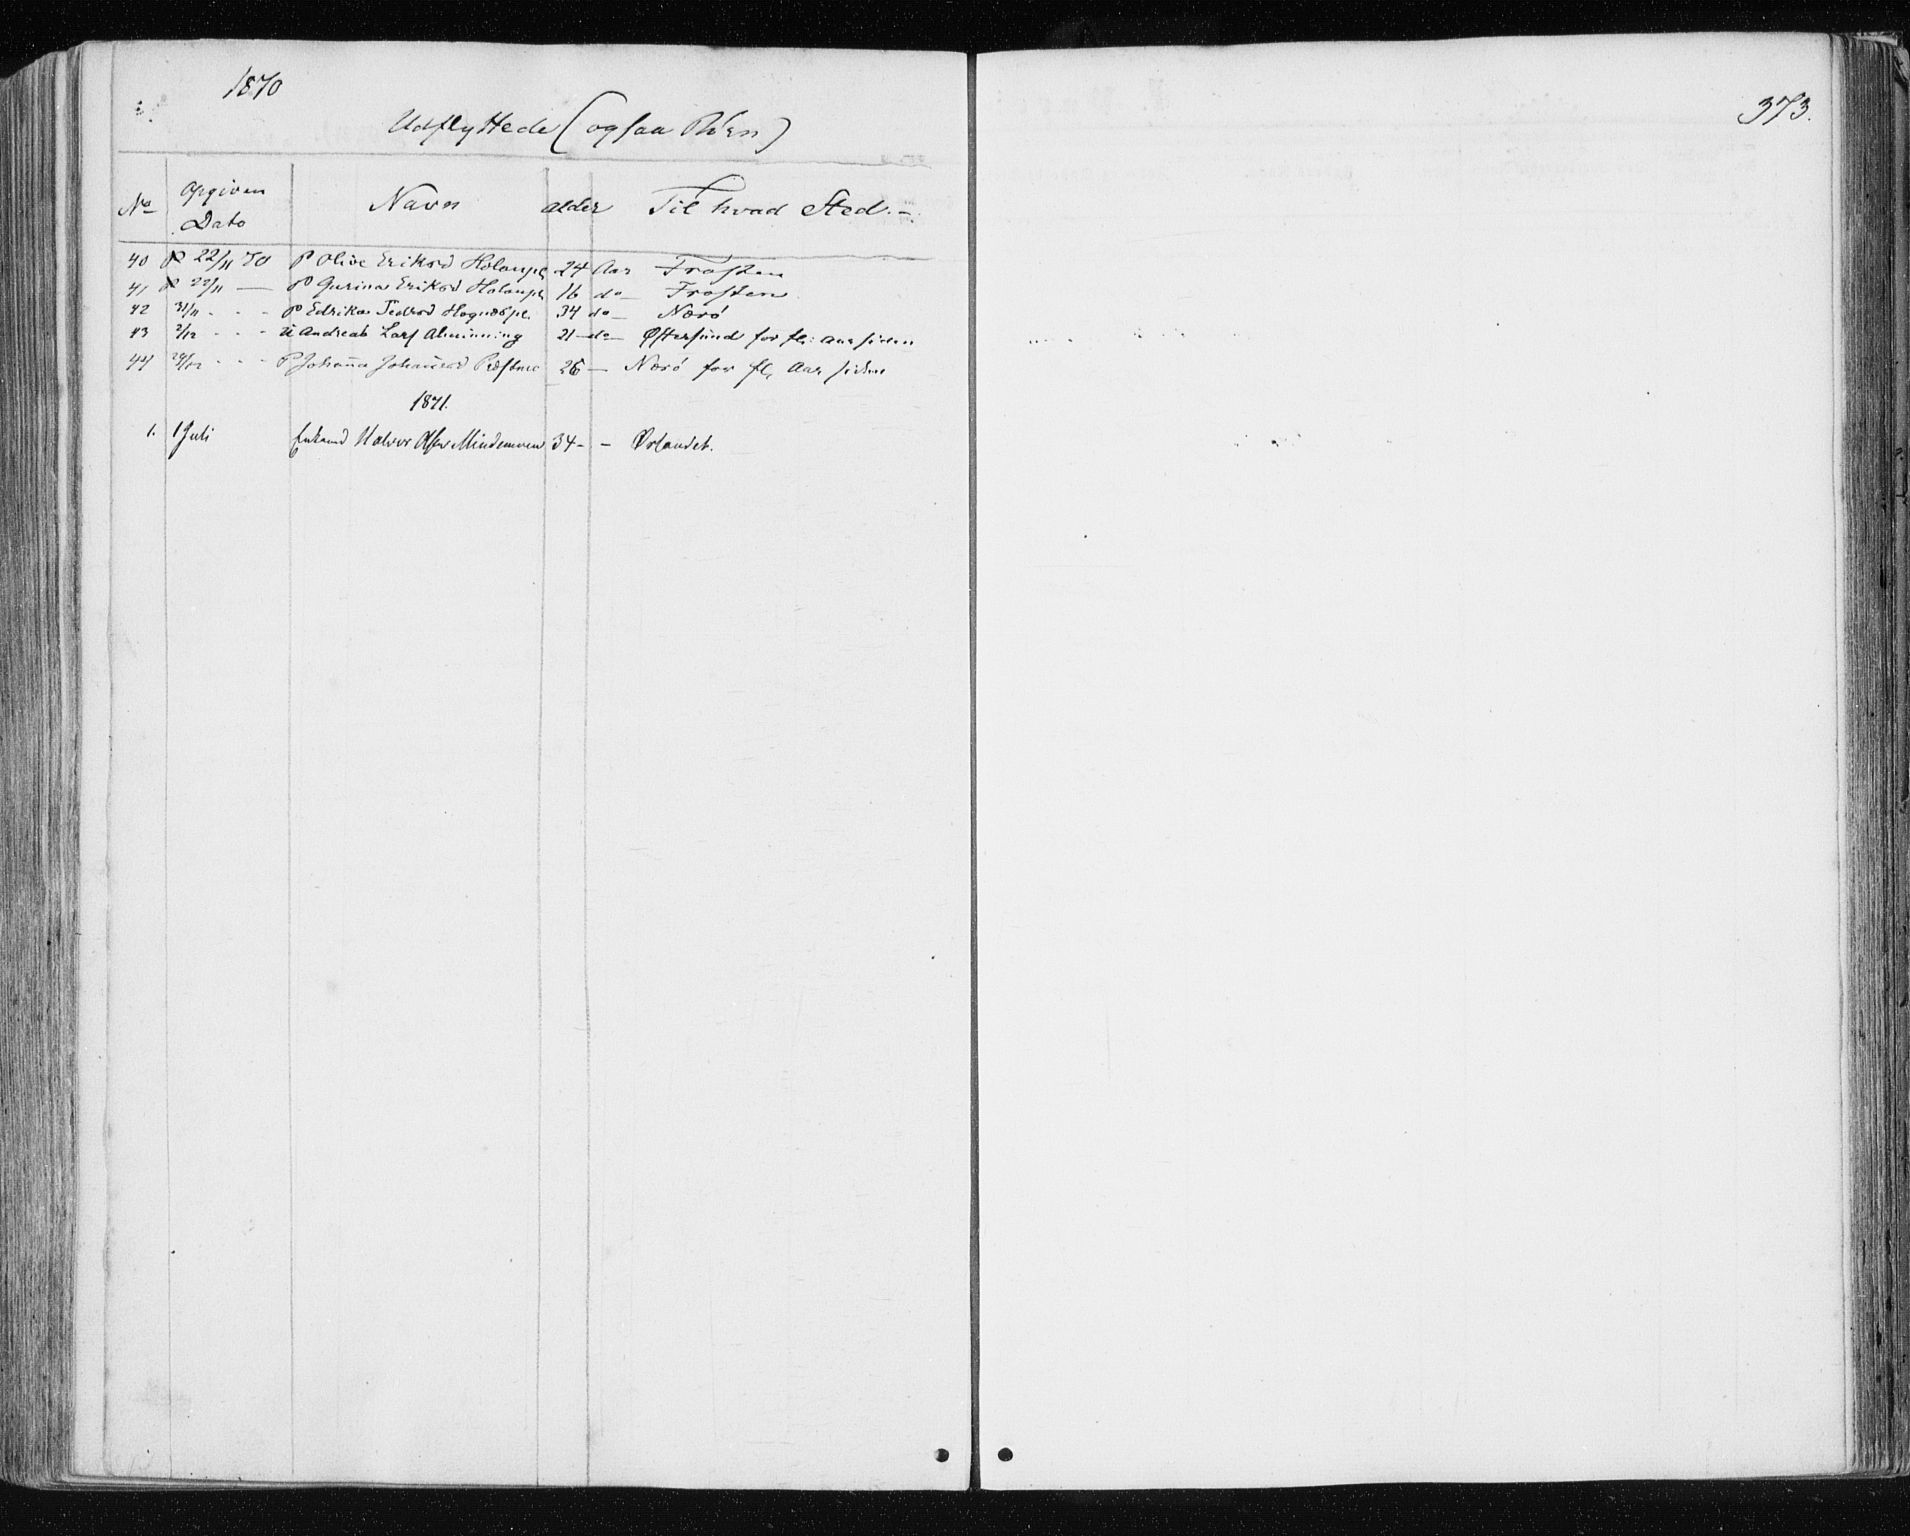 1870
373.
Udflyttede (ogsaa Börn)
No Opgiven Dato Navn alder Til hvad Sted.-
40 P 22/11 70 P Olive Eriksd Holaupl 24 Aar Frosten
41 P 22/11 — P Gurina Eriksd Holaupl 16 do — Frosten
42 31/11 - - - P Edrika Pedrsd Hognæspl. 34 do — Nærö
43 2/12 - - - U Andreas Lars Alminning 21 — do — Östersund for fl: Aar siden
44 29/12 - - - P Johanna Johansd 26 — Nærö for fl. Aar siden
1871.
1. 1 Juli Enkemd Halvor Olsen Mindemoen 34 - - Ørlandet.